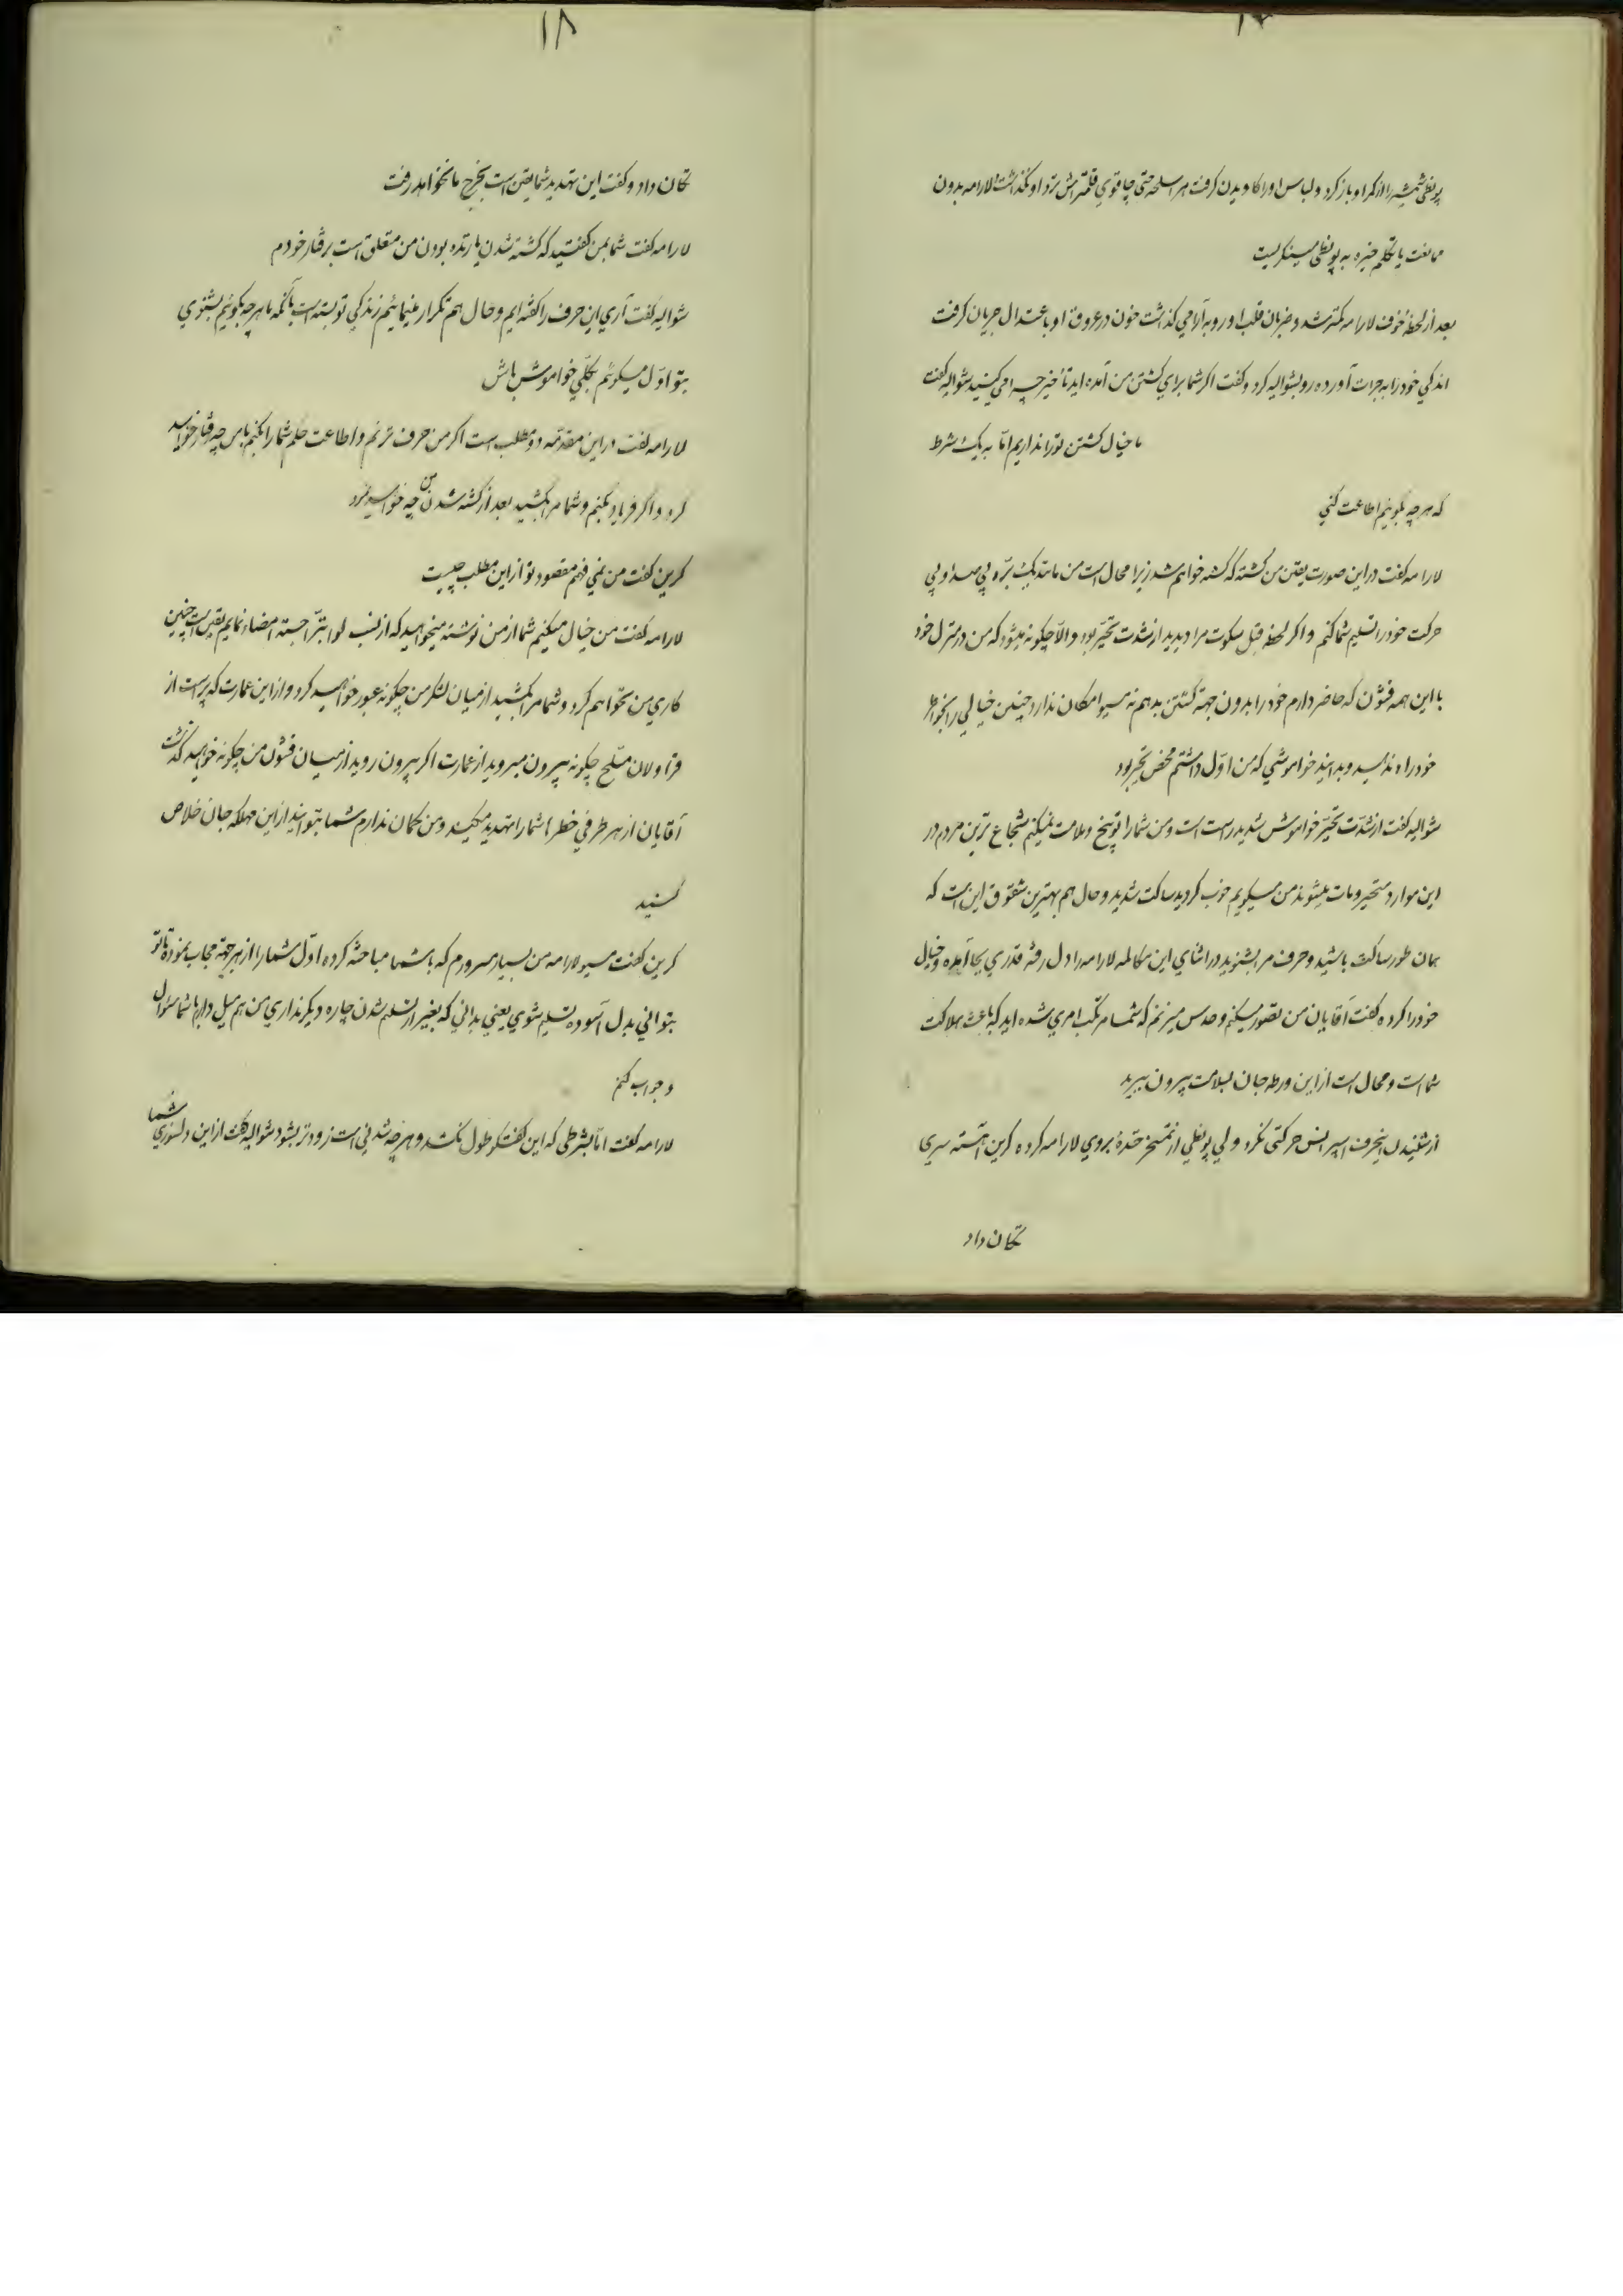 پونطی شمشیر را از کمر او باز کرد و لباس او را کاویدن گرفت هر اسلحه حتی چاقوی قلمتراش نزد او نگذاشت لارامه بدون
ممانعت یا تکلم خیره به پونطی مینگریست
بعد از لحظهٔ خوف لارامه کمتر شد و ضربان قلب او رو به آرامی گذاشت خون در عروق او باعتدال جریان گرفت
اندکی خود را به جرات آورده رو بشوالیه کرد و گفت اگر شما برای کشتن من آمده اید تأخیر چرا می کنید شوالیه گفت
ما خیال کشتن تو را نداریم امّا به یک شرط
که هر چه بگوئیم اطاعت کنی
لارامه گفت در این صورت یقین من کشته خواهم شد زیرا محال است من مانند یک برّه بی صدا و بی
حرکت خود را تسلیم شما کنم و اگر لحظهٔ قبل سکوت مرا دیدید از شدت تحیّر بود و الّا چگونه میشود که من در منزل خود
با این همه قشون که حاضر دارم خود را بدون جهة کشتن بدهم نه مسیو امکان ندارد چنین خیالی را بخواطر
خود راه ندهید و بدانید خواموشی که من اوّل داشتم محض تحیّر بود
شوالیه گفت از شدّت تحیّر خواموش شدید راست است و من شما را توبیخ و ملامت نمیکنم شجاع ترین مردم در
این موارد متحیر و مات میشوند من میگویم خوب کردید ساکت شدید و حال هم بهترین شقوق این است که
همان طور ساکت باشید و حرف مرا بشنوید در اثنای این مکالمه لارامه را دل رفته قدری بجا آمده و خیال
خود را کرده گفت آقایان من تصور میکنم و حدس میزنم که شما مرتکب امری شده اید که باعث هلاکت
شما است و محال است از این ورطه جان بسلامت بیرون ببرید
از شنیدن اینحرف اسپرانس حرکتی نکرد ولی پونطی از تمسخر خندهٔ بروی لارامه کرده کرین آهسته سری
تکان داد
۱۸
تکان داد و گفت این تهدید شما یقین است بخرج ما نخواهد رفت
لارامه گفت شما بمن گفتید که کشته شدن یا زنده بودن من متعلق است برفتار خودم
شوالیه گفت آری این حرف را گفته ایم و حال هم تکرار مینمائیم زندگی تو بسته است بآنکه ما هر چه بگوئیم بشنوی
بتو اوّل میگوئیم بکلّی خواموش باش
لارامه گفت در این مقدّمه دو مطلب است اگر من حرف نزنم و اطاعت حکم شما را بکنم با من چه رفتار خواهید
کرد و اگر فریاد بکنم و شما مرا بکشید بعد از کشته شدن من چه خواهید کرد
کرین گفت من نمی فهم مقصود تو از این مطلب چیست
لارامه گفت من خیال میکنم شما از من نوشته میخواهید که از نسب لوا تبرّا جسته امضاء نمایم یقین است چنین
کاری من نخواهم کرد و شما مرا بکشید از میان لشکر من چگونه عبور خواهید کرد و از این عمارت که پر است از
قراولان مسلّح چگونه بیرون میروید از عمارت اگر بیرون روید از میان قشون من چگونه خواهید گذشت
آقایان از هر طرفی خطر شما را تهدید میکند و من گمان ندارم شما بتوانید از این مهلکه جان خلاص
کنید
کرین گفت مسیو لارامه من بسیار مسرورم که با شما مباحثه کرده اوّل شما را از هر جهة مجاب نموده تا تو
بتوانی بدل آسوده تسلیم شوی یعنی بدانی که بغیر از تسلیم شدن چاره دیگر نداری من هم میل دارم با شما سئوال
و جواب کنم
لارامه گفت امّا بشرطی که این گفتگو طول نکشد و هر چه شدنی است زودتر بشود شوالیه گفت از این دلسوزی شما